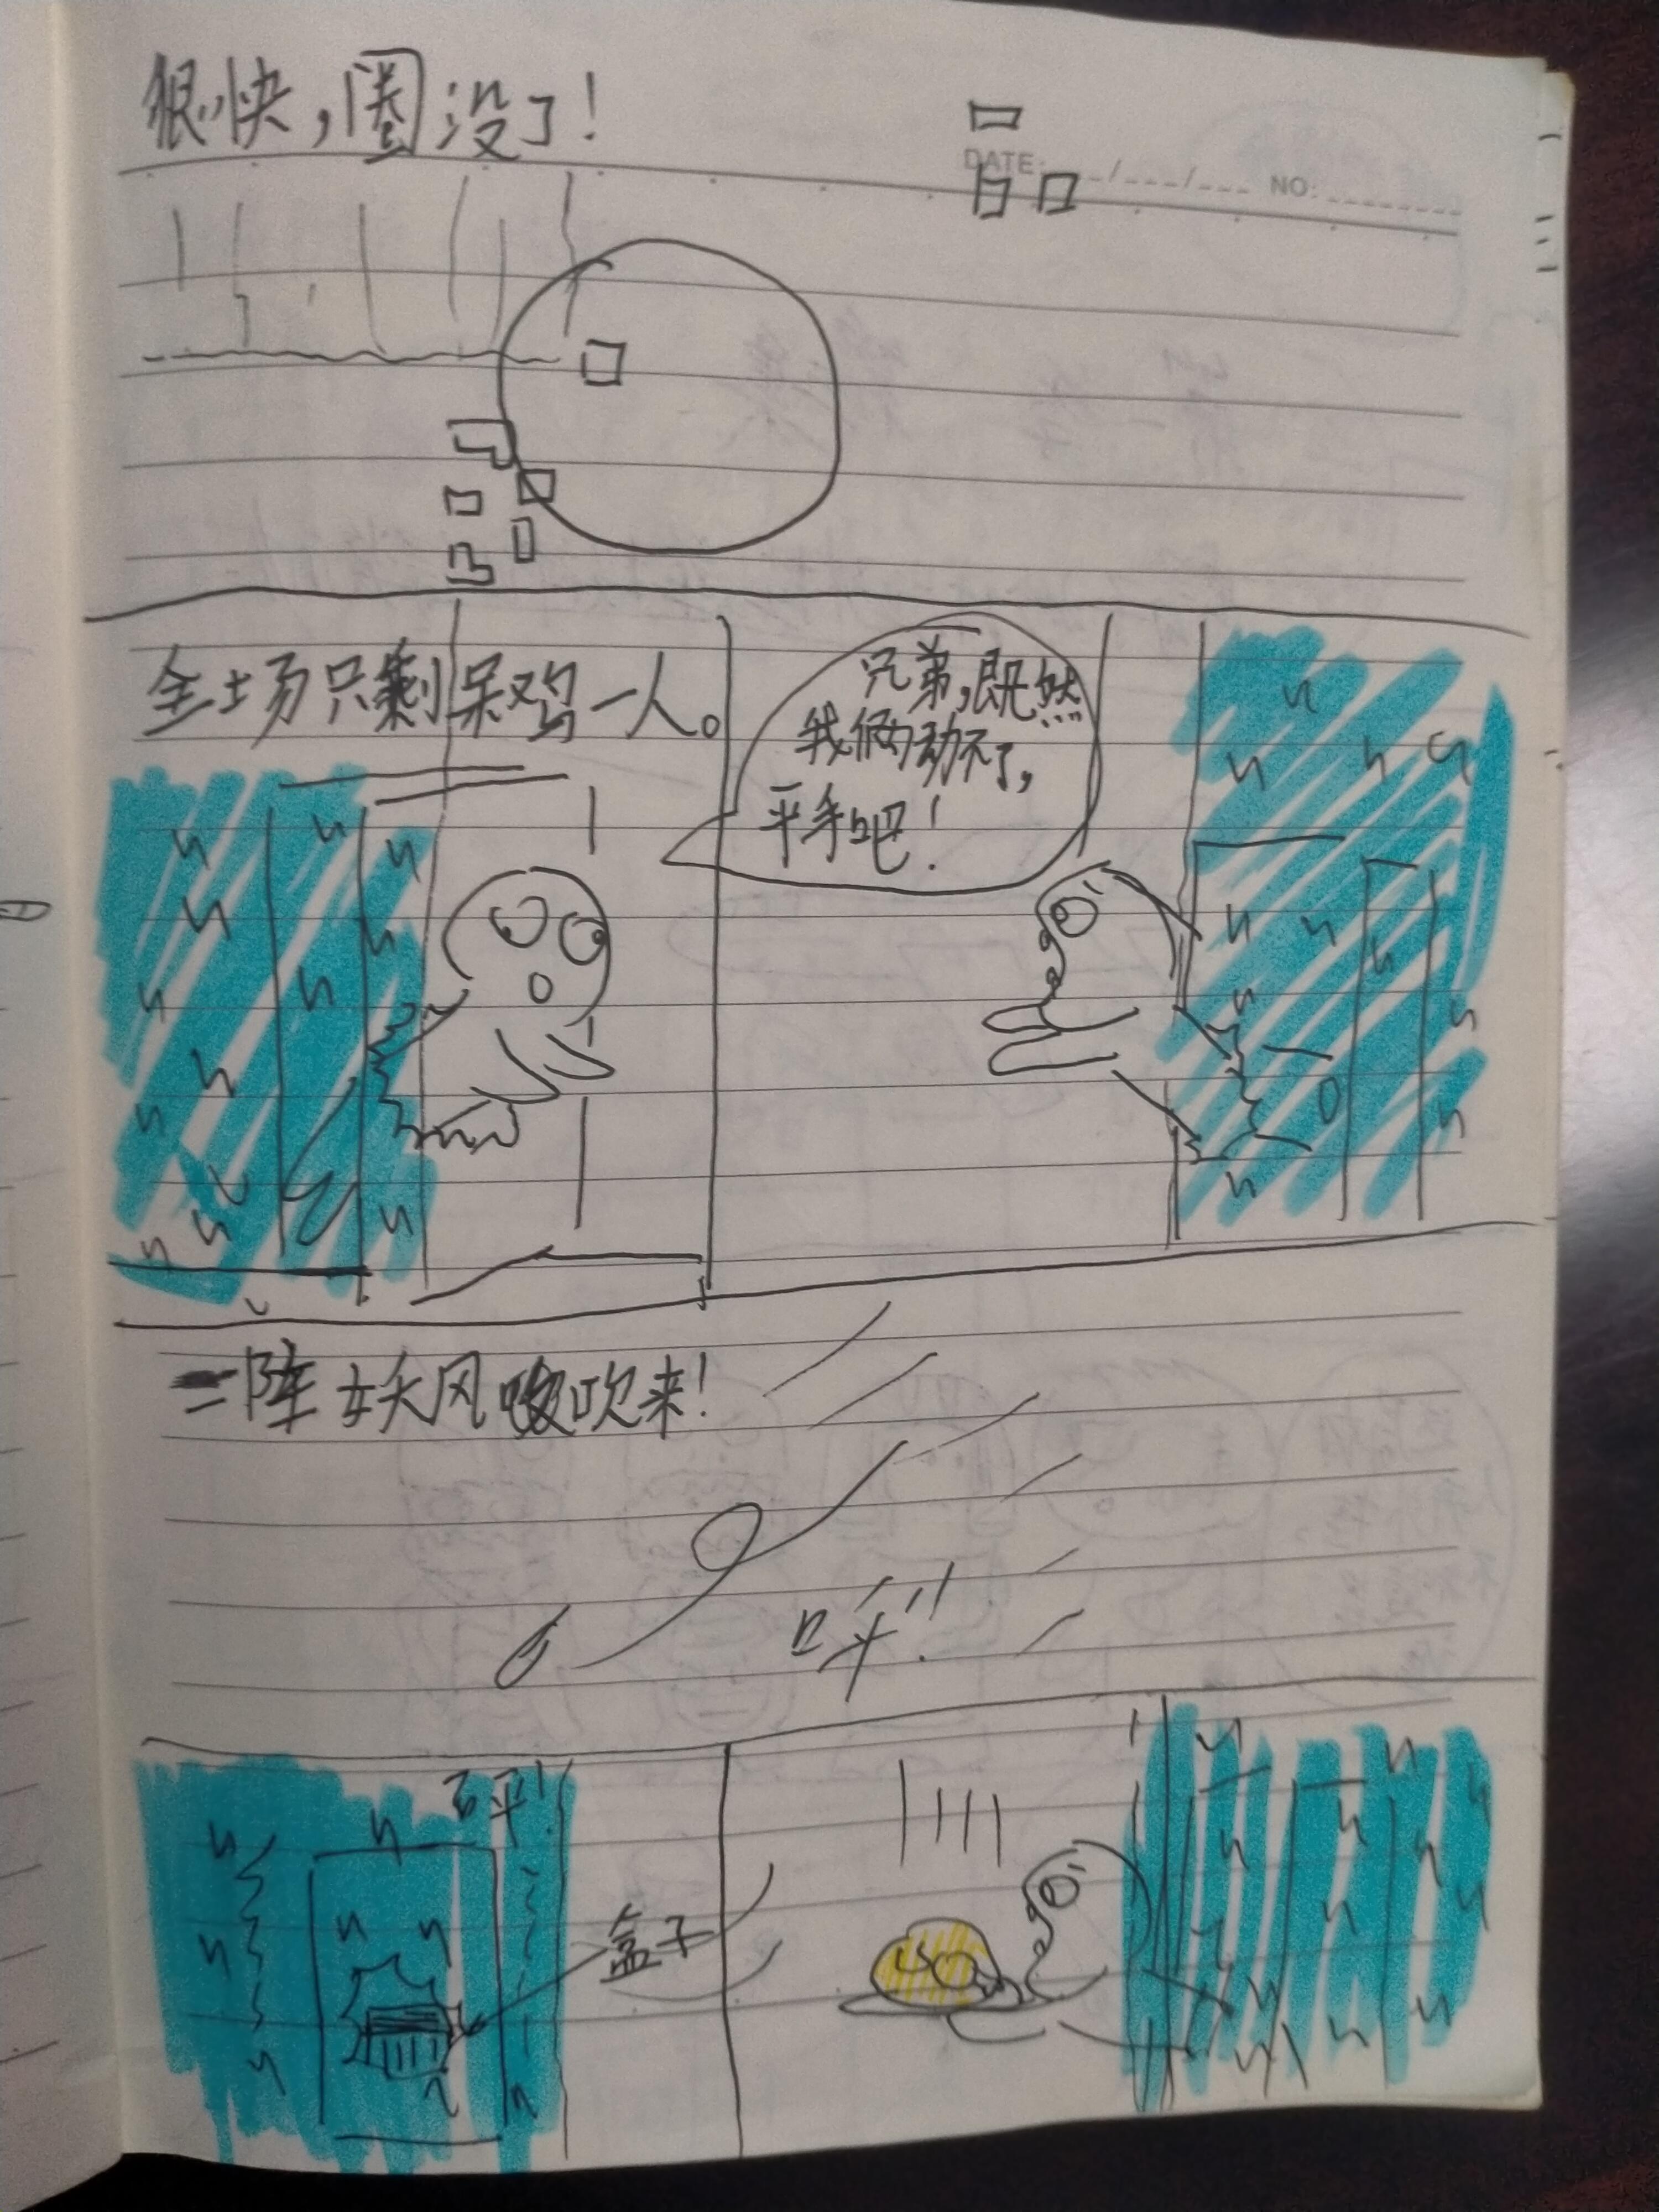 很快，圈没了！
DATE: ___/___/___ NO: ________
全场只剩呆鸡一人。
兄弟，既然
我俩动不了，
平手吧！
一阵妖风吹来！
呼!!
盒子